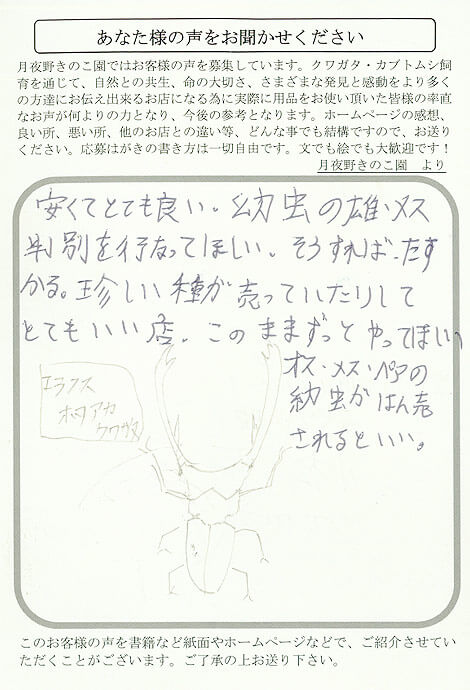 あなた様の声をお聞かせください
月夜野きのこ園ではお客様の声を募集しています。クワガタ・カブトムシ飼
育を通じて、自然との共生、命の大切さ、さまざまな発見と感動をより多く
の方達にお伝え出来るお店になる為に実際に用品をお使い頂いた皆様の率直
なお声が何よりの力となり、今後の参考となります。ホームページの感想、
良い所、悪い所、他のお店との違い等、どんな事でも結構ですので、お送り
ください。応募はがきの書き方は一切自由です。文でも絵でも大歓迎です！
月夜野きのこ園　より
安くてとても良い。幼虫の雄・メス
判別を行なってほしい。そうすれば、たす
かる。珍しい種が売っていたりして
とてもいい店。このままずっとやってほしい
オス・メス・ペアの
幼虫がはん売
されるといい。
エラフス
ホソアカ
クワガタ
このお客様の声を書籍など紙面やホームページなどで、ご紹介させてい
ただくことがございます。ご了承の上お送り下さい。